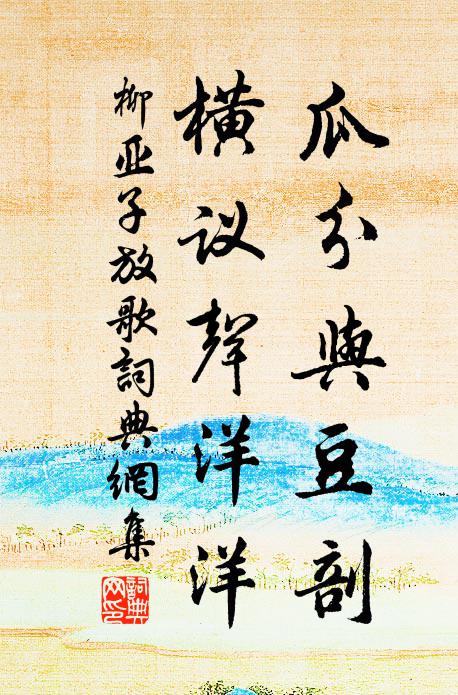 瓜分與豆剖
橫议聲洋洋
柳亚子放歌詞典網集